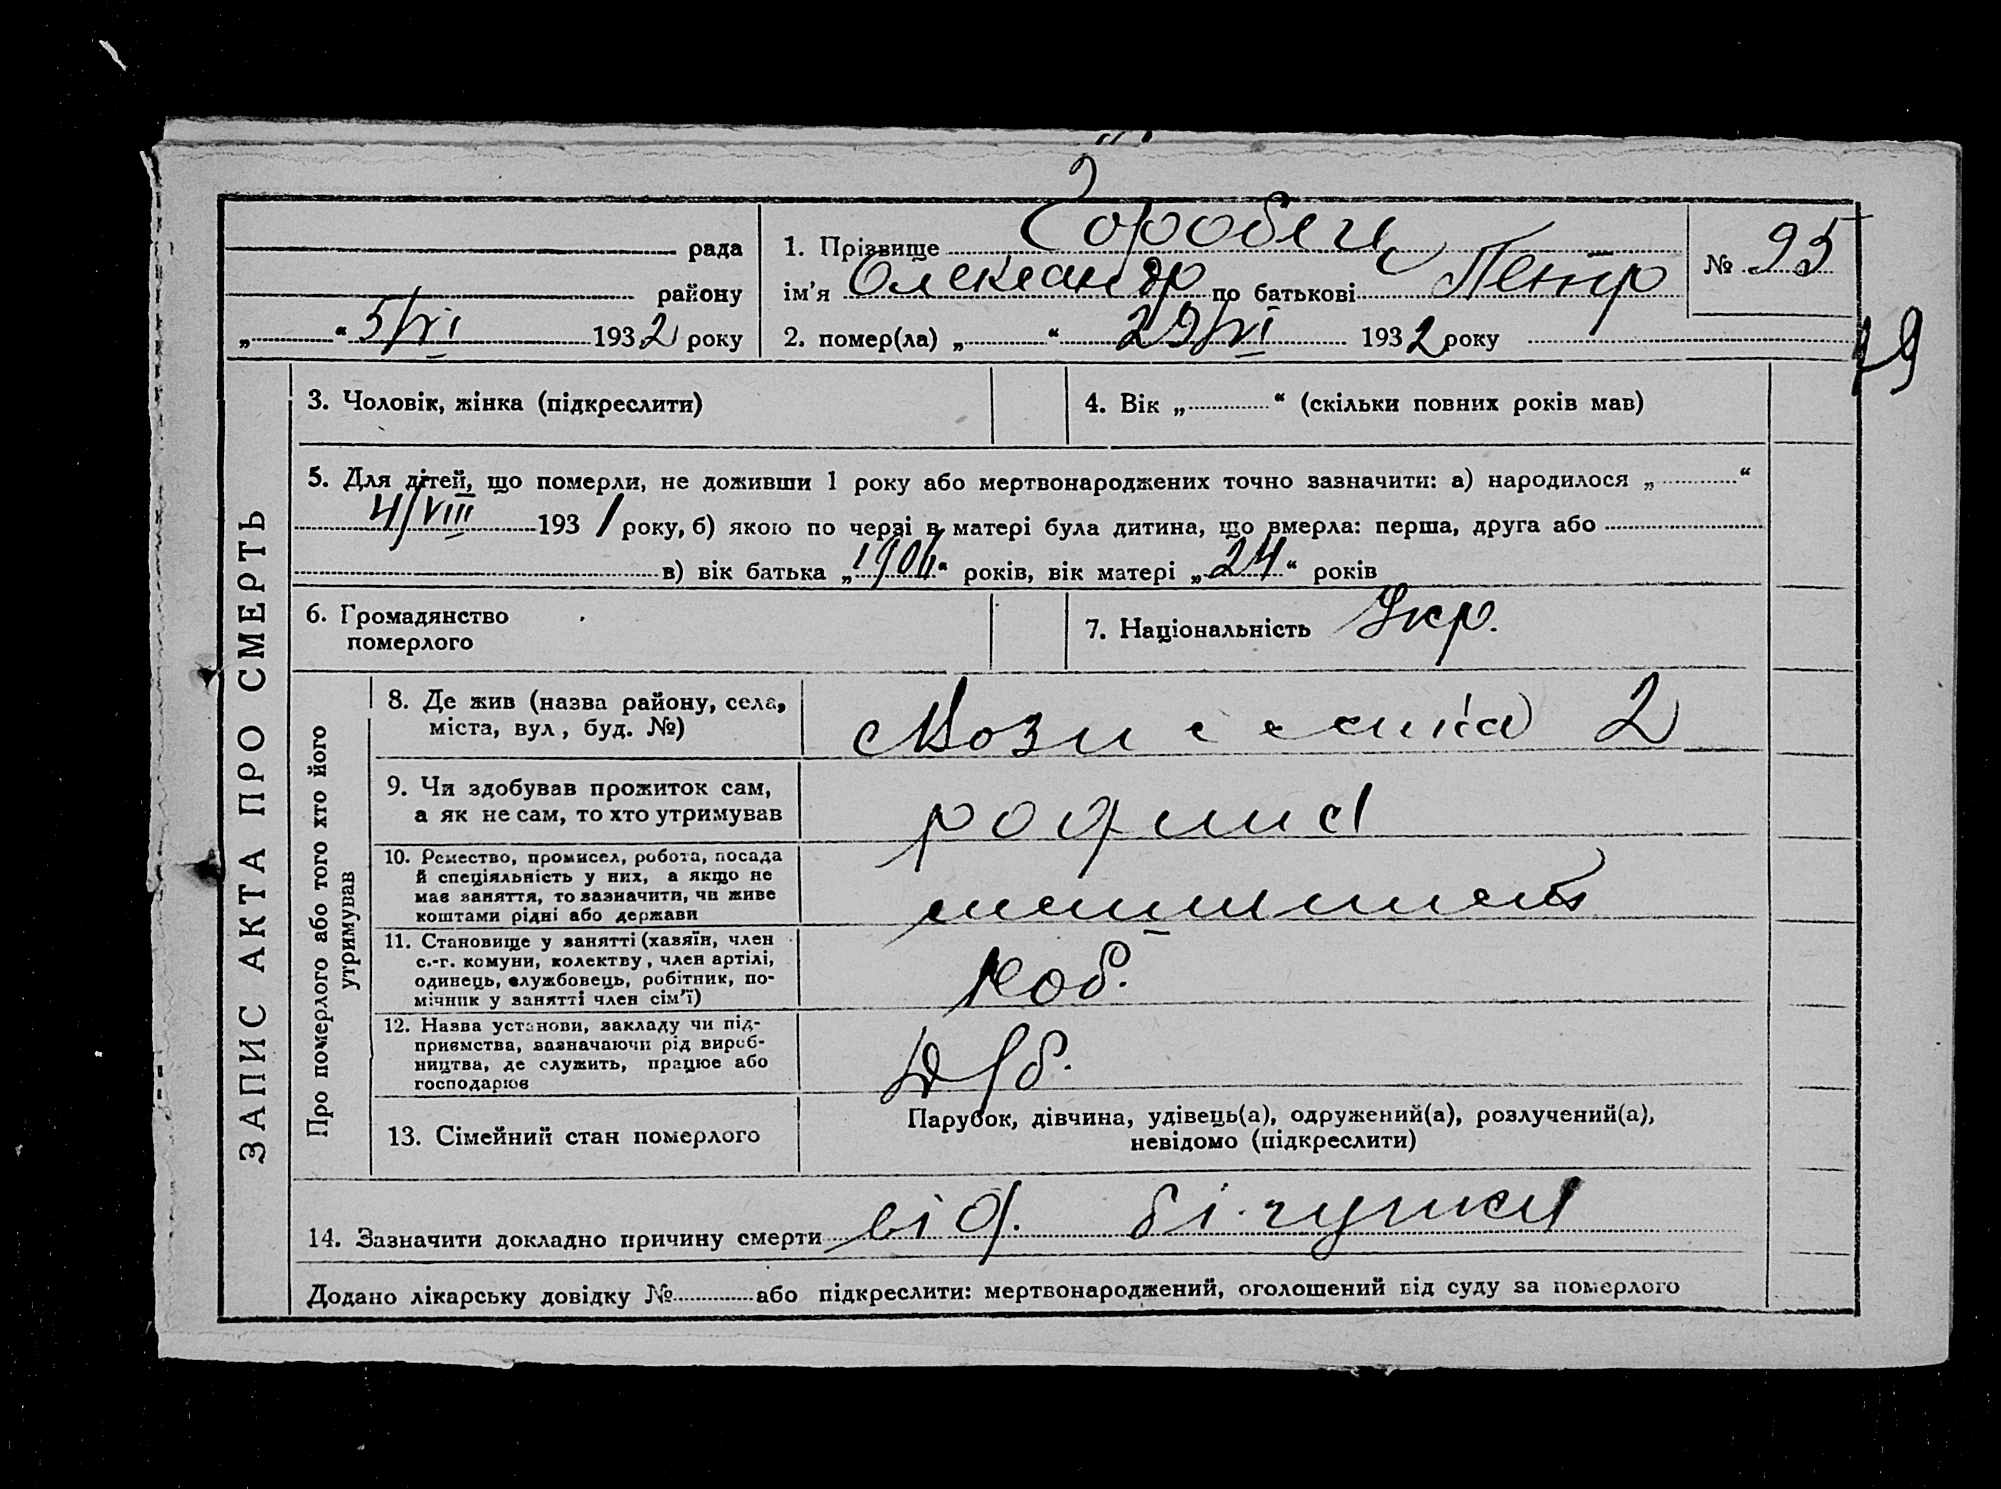 рада
району
„ “ 5/VI 1932 року
1. Прізвище Горобець
ім’я Олександр по батькові Петр
2. помер(ла) „ “ 29/VI 1932 року
№ 95
79
ЗАПИС АКТА ПРО СМЕРТЬ
3. Чоловік, жінка (підкреслити)
4. Вік „ “ (скільки повних років мав)
5. Для дітей, що померли, не доживши 1 року або мертвонароджених точно зазначити: а) народилося „ “
4/VIII 1931 року, б) якою по черзі в матері була дитина, що вмерла: перша, друга або
в) вік батька „1906“ років, вік матері „24“ років
6. Громадянство
померлого
7. Національність Укр.
Про померлого або того хто його
утримував
8. Де жив (назва району, села,
міста, вул, буд. №)
2
9. Чи здобував прожиток сам,
а як не сам, то хто утримував
родина
10. Ремество, промисел, робота, посада
й спеціяльність у них, а якщо не
має заняття, то зазначити, чи живе
коштами рідні або держави
11. Становище у занятті (хазяїн, член
с.-г. комуни, колективу, член артілі,
одинець, службовець, робітник, по-
мічник у занятті член сім’ї)
12. Назва установи, закладу чи під-
приємства, зазначаючи рід вироб-
ництва, де служить, працює або
господарює
13. Сімейний стан померлого
Парубок, дівчина, удівець(а), одружений(а), розлучений(а),
невідомо (підкреслити)
14. Зазначити докладно причину смерти від бігунки
Додано лікарську довідку № або підкреслити: мертвонароджений, оголошений від суду за померлого